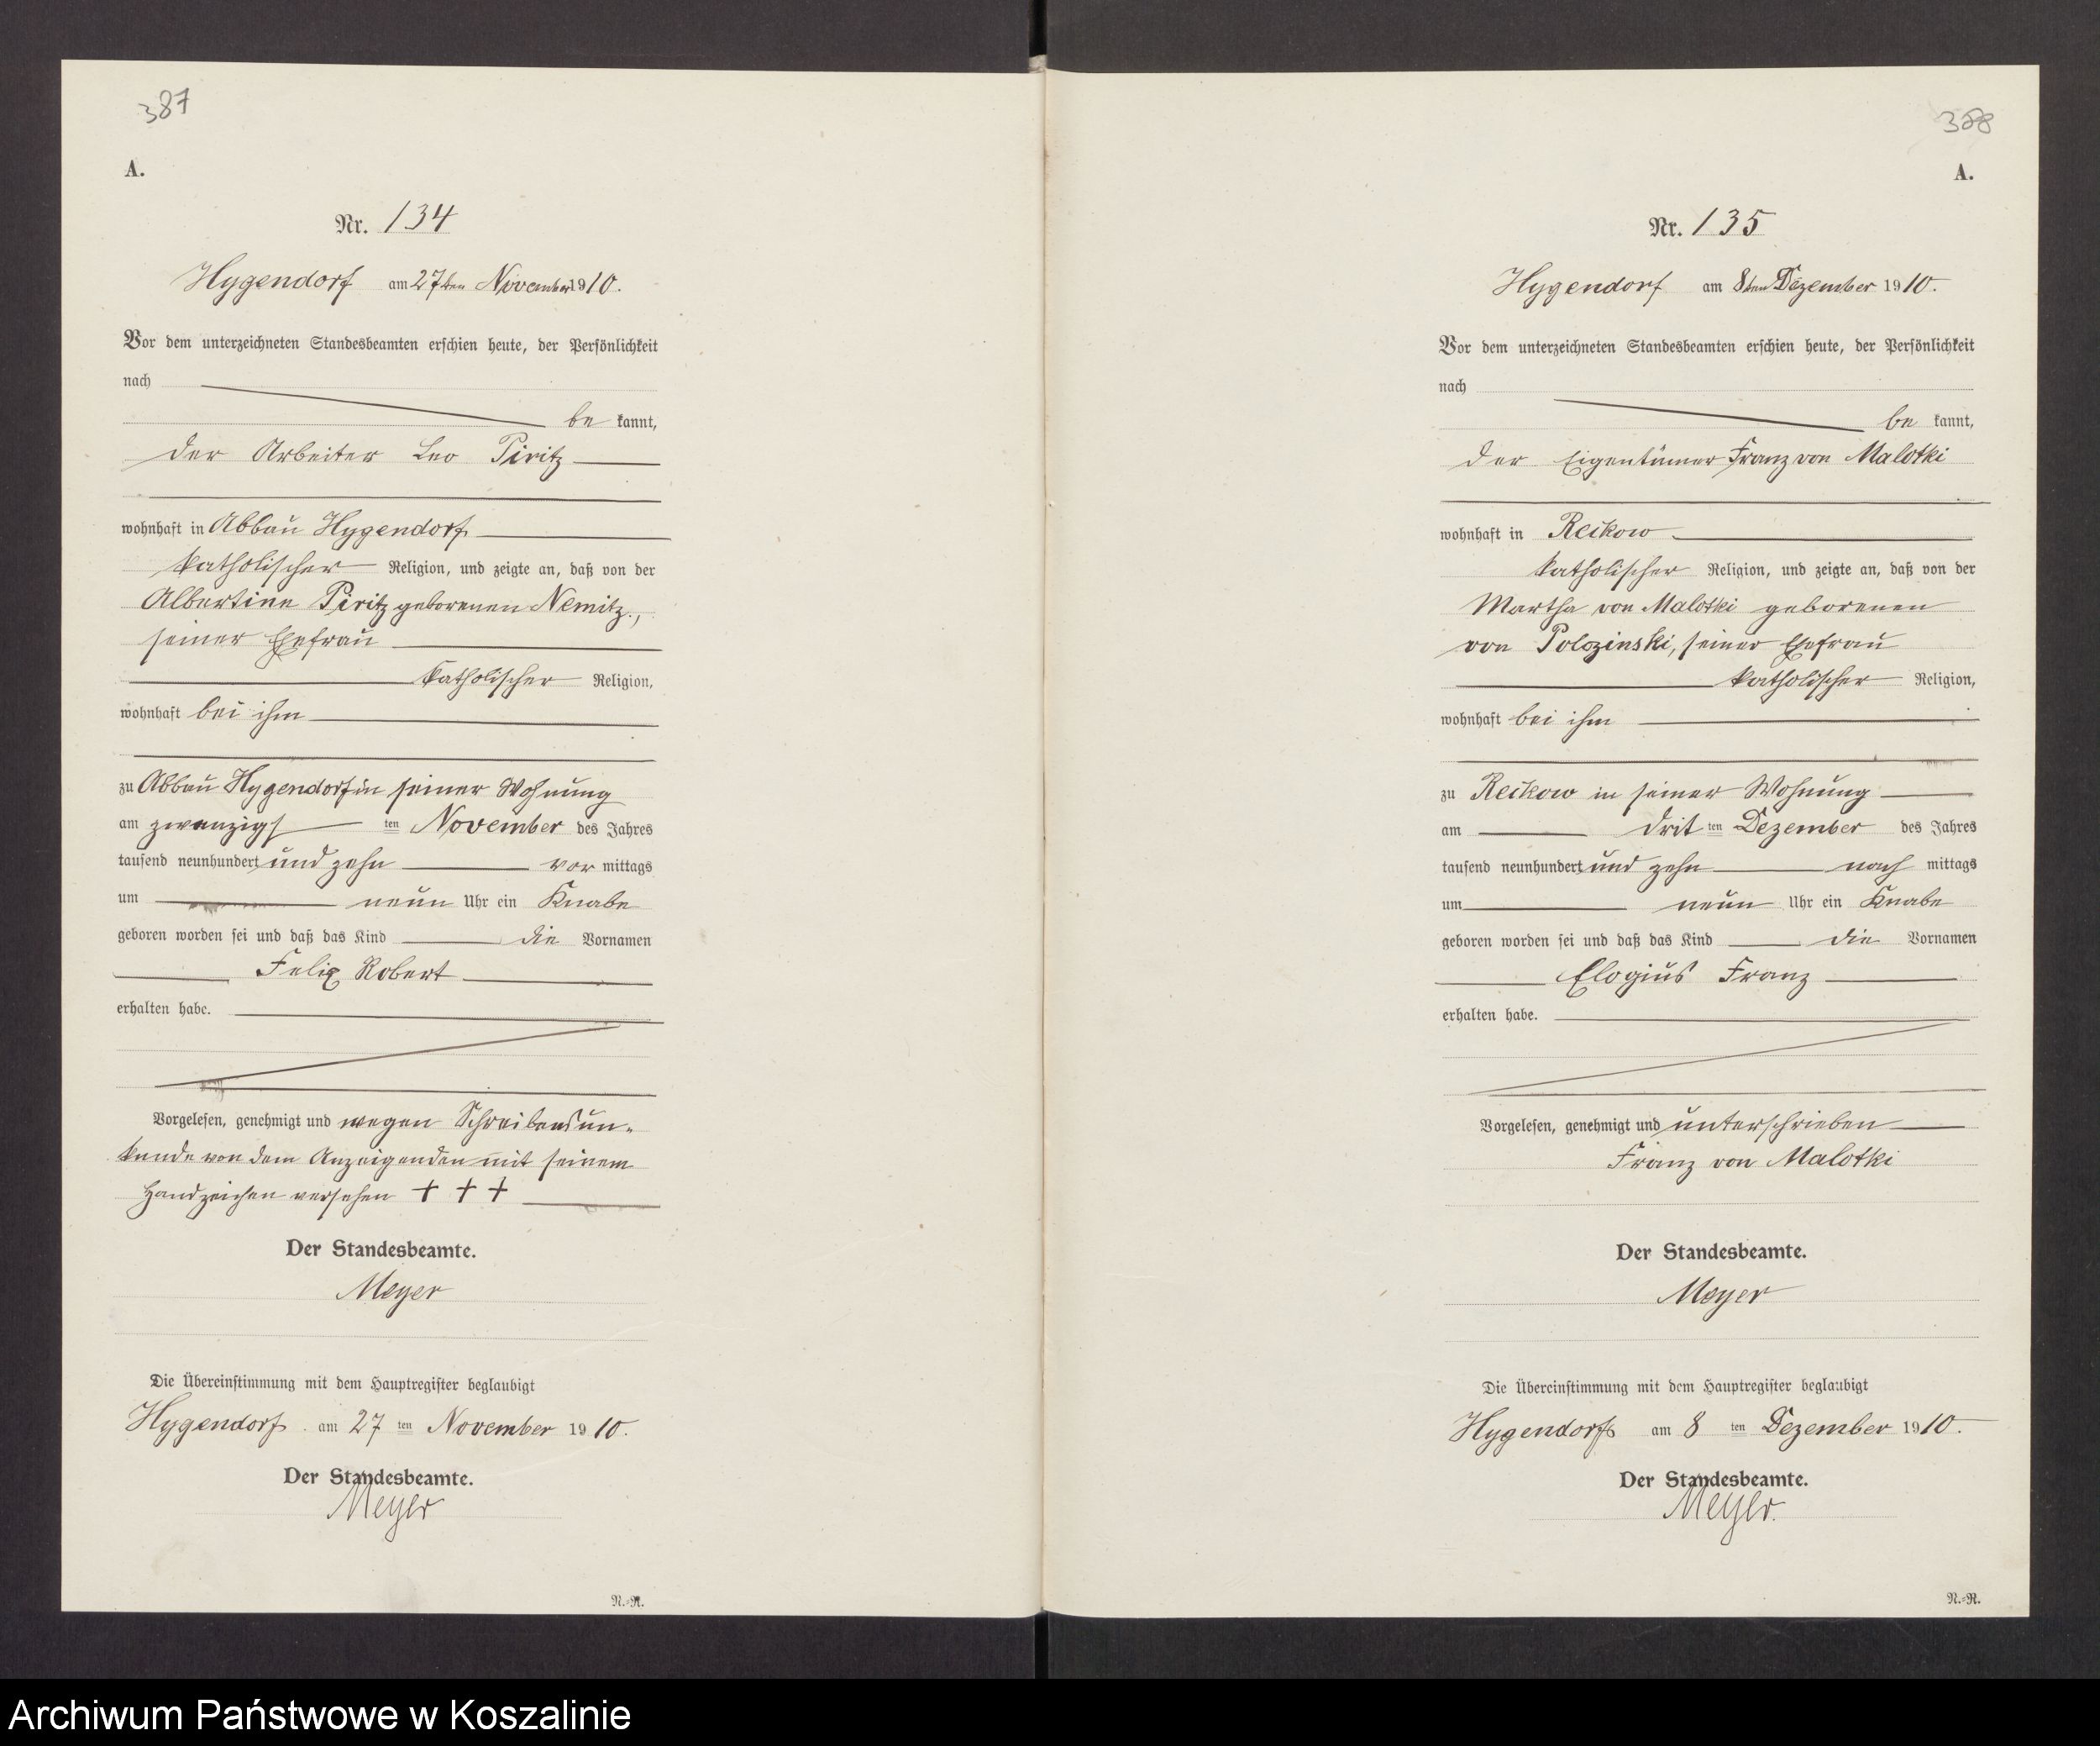 387
A.
Nr. 134
Hygendorf am 27ten November 1910.
Vor dem unterzeichneten Standesbeamten erschien heute, der Persönlichkeit
nach
be kannt,
der Arbeiter Leo Piritz
wohnhaft in Abbau Hygendorf
katholischer Religion, und zeigte an, daß von der
Albertine Piritz geborenen Nemitz,
seiner Ehefrau
katholischer Religion,
wohnhaft bei ihm
zu Abbau Hygendorf in seiner Wohnung
am zwanzigsten November des Jahres
tausend neunhundert und zehn vor mittags
um neun Uhr ein Knabe
geboren worden sei und daß das Kind die Vornamen
Felix Robert
erhalten habe.
Vorgelesen, genehmigt und wegen Schreibensun-
kunde von dem Anzeigenden mit seinem
Handzeichen versehen + + +
Der Standesbeamte.
Meyer
Die Übereinstimmung mit dem Hauptregister beglaubigt
Hygendorf am 27 ten November 1910.
Der Standesbeamte.
Meyer
N.-R.
388
A.
Nr. 135
Hygendorf am 8ten Dezember 1910.
Vor dem unterzeichneten Standesbeamten erschien heute, der Persönlichkeit
nach
be kannt,
der Eigentümer Franz von Malotki
wohnhaft in Reckow
katholischer Religion, und zeigte an, daß von der
Martha von Malotki geborenen
von Polczinski, seiner Ehefrau
katholischer Religion,
wohnhaft bei ihm
zu Reckow in seiner Wohnung
am dritten Dezember des Jahres
tausend neunhundert und zehn nach mittags
um neun Uhr ein Knabe
geboren worden sei und daß das Kind die Vornamen
Elogius Franz
erhalten habe.
Vorgelesen, genehmigt und unterschrieben
Franz von Malotki
Der Standesbeamte.
Meyer
Die Übereinstimmung mit dem Hauptregister beglaubigt
Hygendorf am 8 ten Dezember 1910.
Der Standesbeamte.
Meyer.
N.-R.
Archiwum Państwowe w Koszalinie